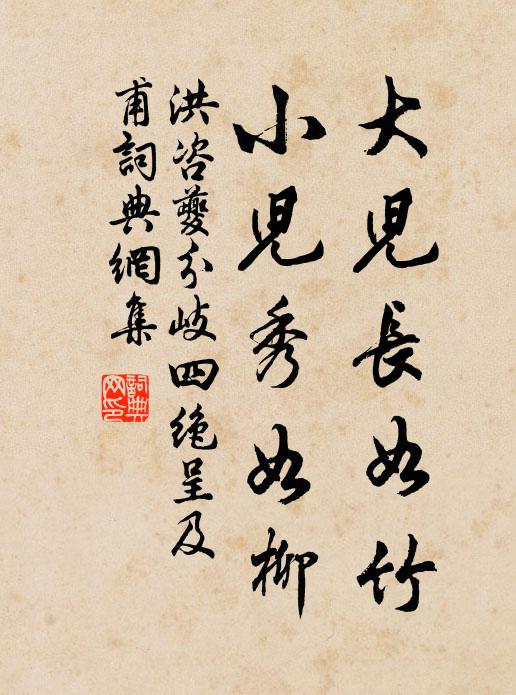 大兒長如竹
小兒秀如柳
洪咨夔分岐四绝呈及
甫詞典網集
詞典网印